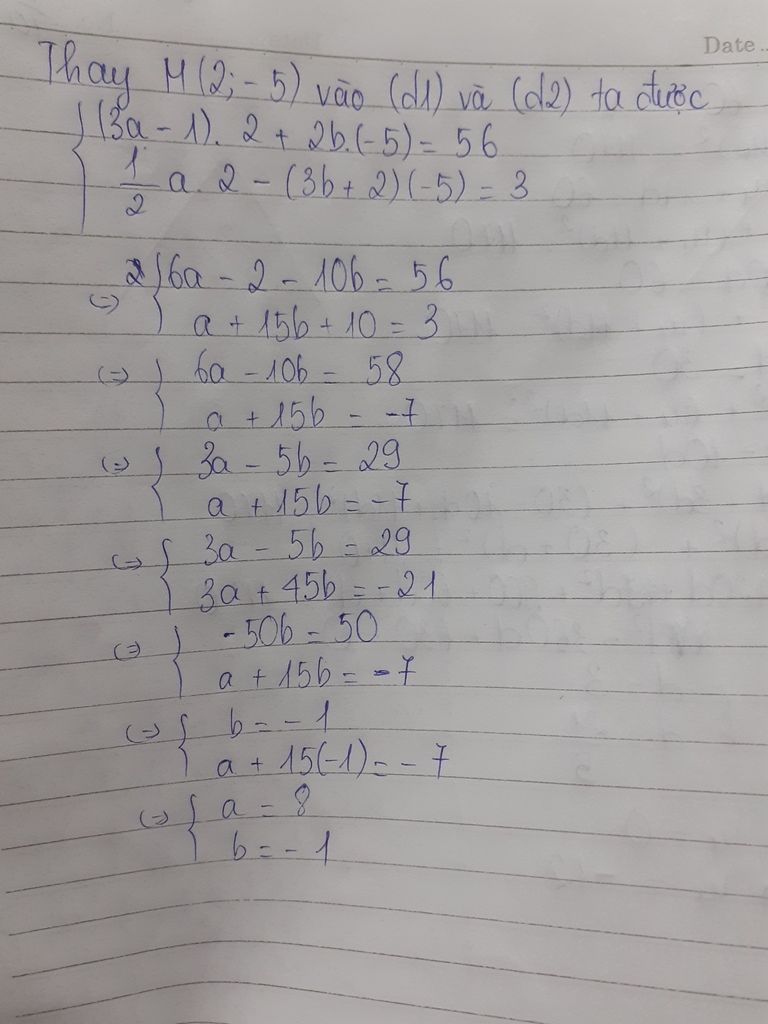 Date..
Thay M(2;-5) vào (d1) và (d2) ta được
{ (3a - 1). 2 + 2b.(-5) = 56
1/2 a. 2 - (3b + 2)(-5) = 3
{ 6a - 2 - 10b = 56
(=) a + 15b + 10 = 3
(=) { 6a - 10b = 58
a + 15b = -7
(=) { 3a - 5b = 29
a + 15b = -7
(=) { 3a - 5b = 29
3a + 45b = -21
(=) { -50b = 50
a + 15b = -7
(=) { b = -1
a + 15(-1) = -7
(=) { a = 8
b = -1